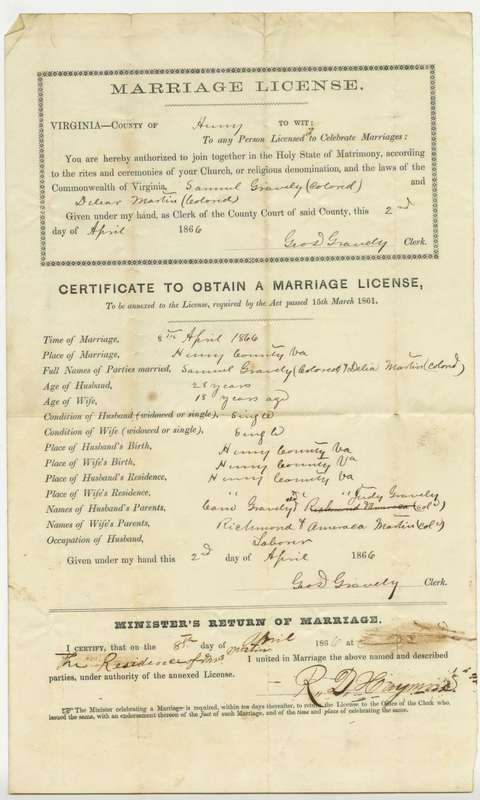 MARRIAGE LICENSE.
VIRGINIA—COUNTY OF Henry TO WIT:
To any Person Licensed to Celebrate Marriages:
You are hereby authorized to join together in the Holy State of Matrimony, according
to the rites and ceremonies of your Church, or religious denomination, and the laws of the
Commonwealth of Virginia, Samuel Gravely (Colored) and
Deliar Martin (Colored)
Given under my hand, as Clerk of the County Court of said County, this 2nd
day of April 1866
Geo D Gravely Clerk.
CERTIFICATE TO OBTAIN A MARRIAGE LICENSE,
To be annexed to the License, required by the Act passed 15th March 1861.
Time of Marriage, 8th April 1866
Place of Marriage, Henry County Va
Full Names of Parties married, Samuel Gravely (Colored) & Delia Martin (colord)
Age of Husband, 28 years
Age of Wife, 18 years ago
Condition of Husband (widowed or single), Single
Condition of Wife (widowed or single), Single
Place of Husband's Birth, Henry County Va
Place of Wife's Birth, Henry County Va
Place of Husband's Residence, Henry County Va
Place of Wife's Residence, " " "
Names of Husband's Parents, Gravely Judy Gravely (col)
Names of Wife's Parents, Richmond & Martin (col)
Occupation of Husband, Laborer
Given under my hand this 2nd day of April 1866
Geo D Gravely Clerk.
MINISTER'S RETURN OF MARRIAGE.
I CERTIFY, that on the 8th day of April 1866 at
The Residence of Martin I united in Marriage the above named and described
parties, under authority of the annexed License.
R. D.
The Minister celebrating a Marriage is required, within ten days thereafter, to return the License to the Office of the Clerk who
issued the same, with an endorsement thereon of the fact of such Marriage, and of the time and place of celebrating the same.